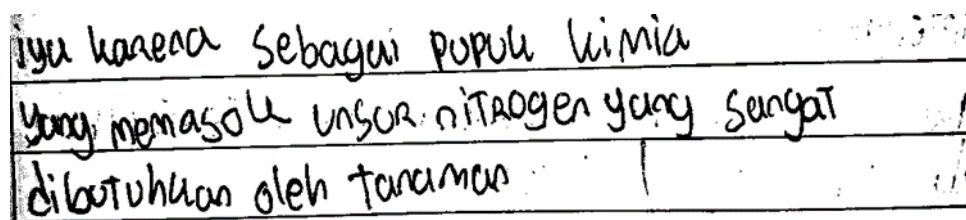 iya karena sebagai pupuk kimia
yang memasok unsur nitrogen yang sangat
dibutuhkan oleh tanaman